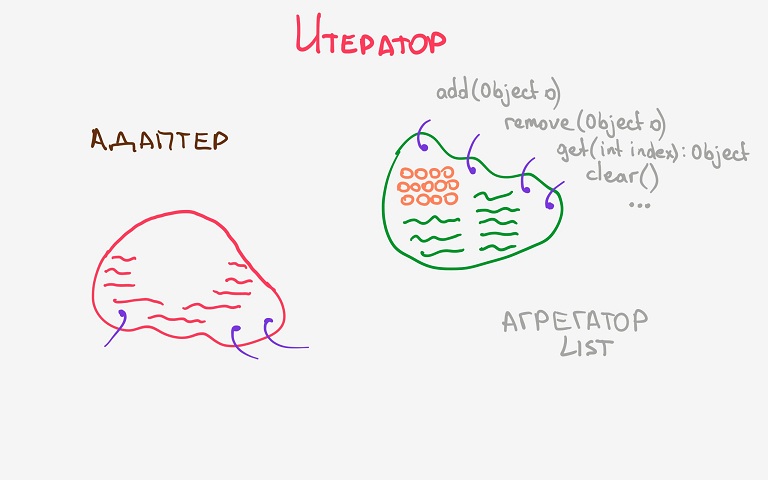 Итератор
add(Object o)
remove(Object o)
get(int index): Object
clear()
...
АДАПТЕР
АГРЕГАТОР
LIST